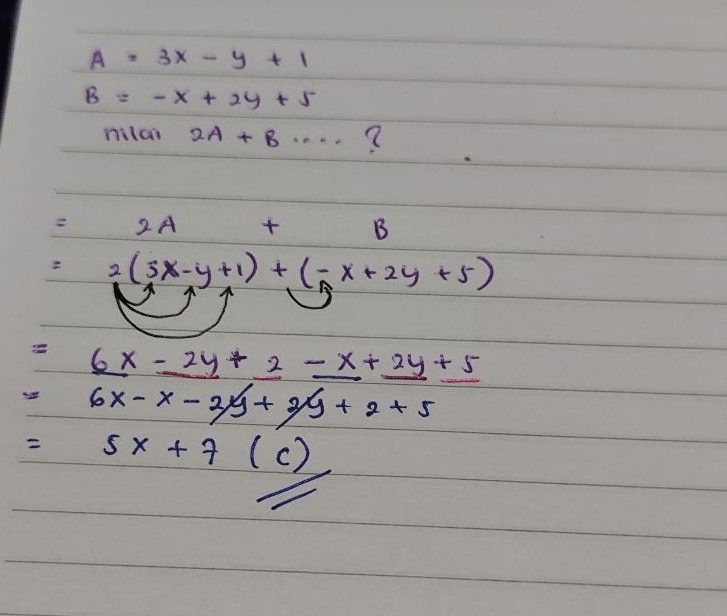 A = 3x - y + 1
B = -x + 2y + 5
nilai 2A + B ....?
= 2A + B
= 2(3x-y+1) + (-x+2y+5)
= 6x - 2y + 2 - x + 2y + 5
= 6x - x - 2y + 2y + 2 + 5
= 5x + 7 (C)